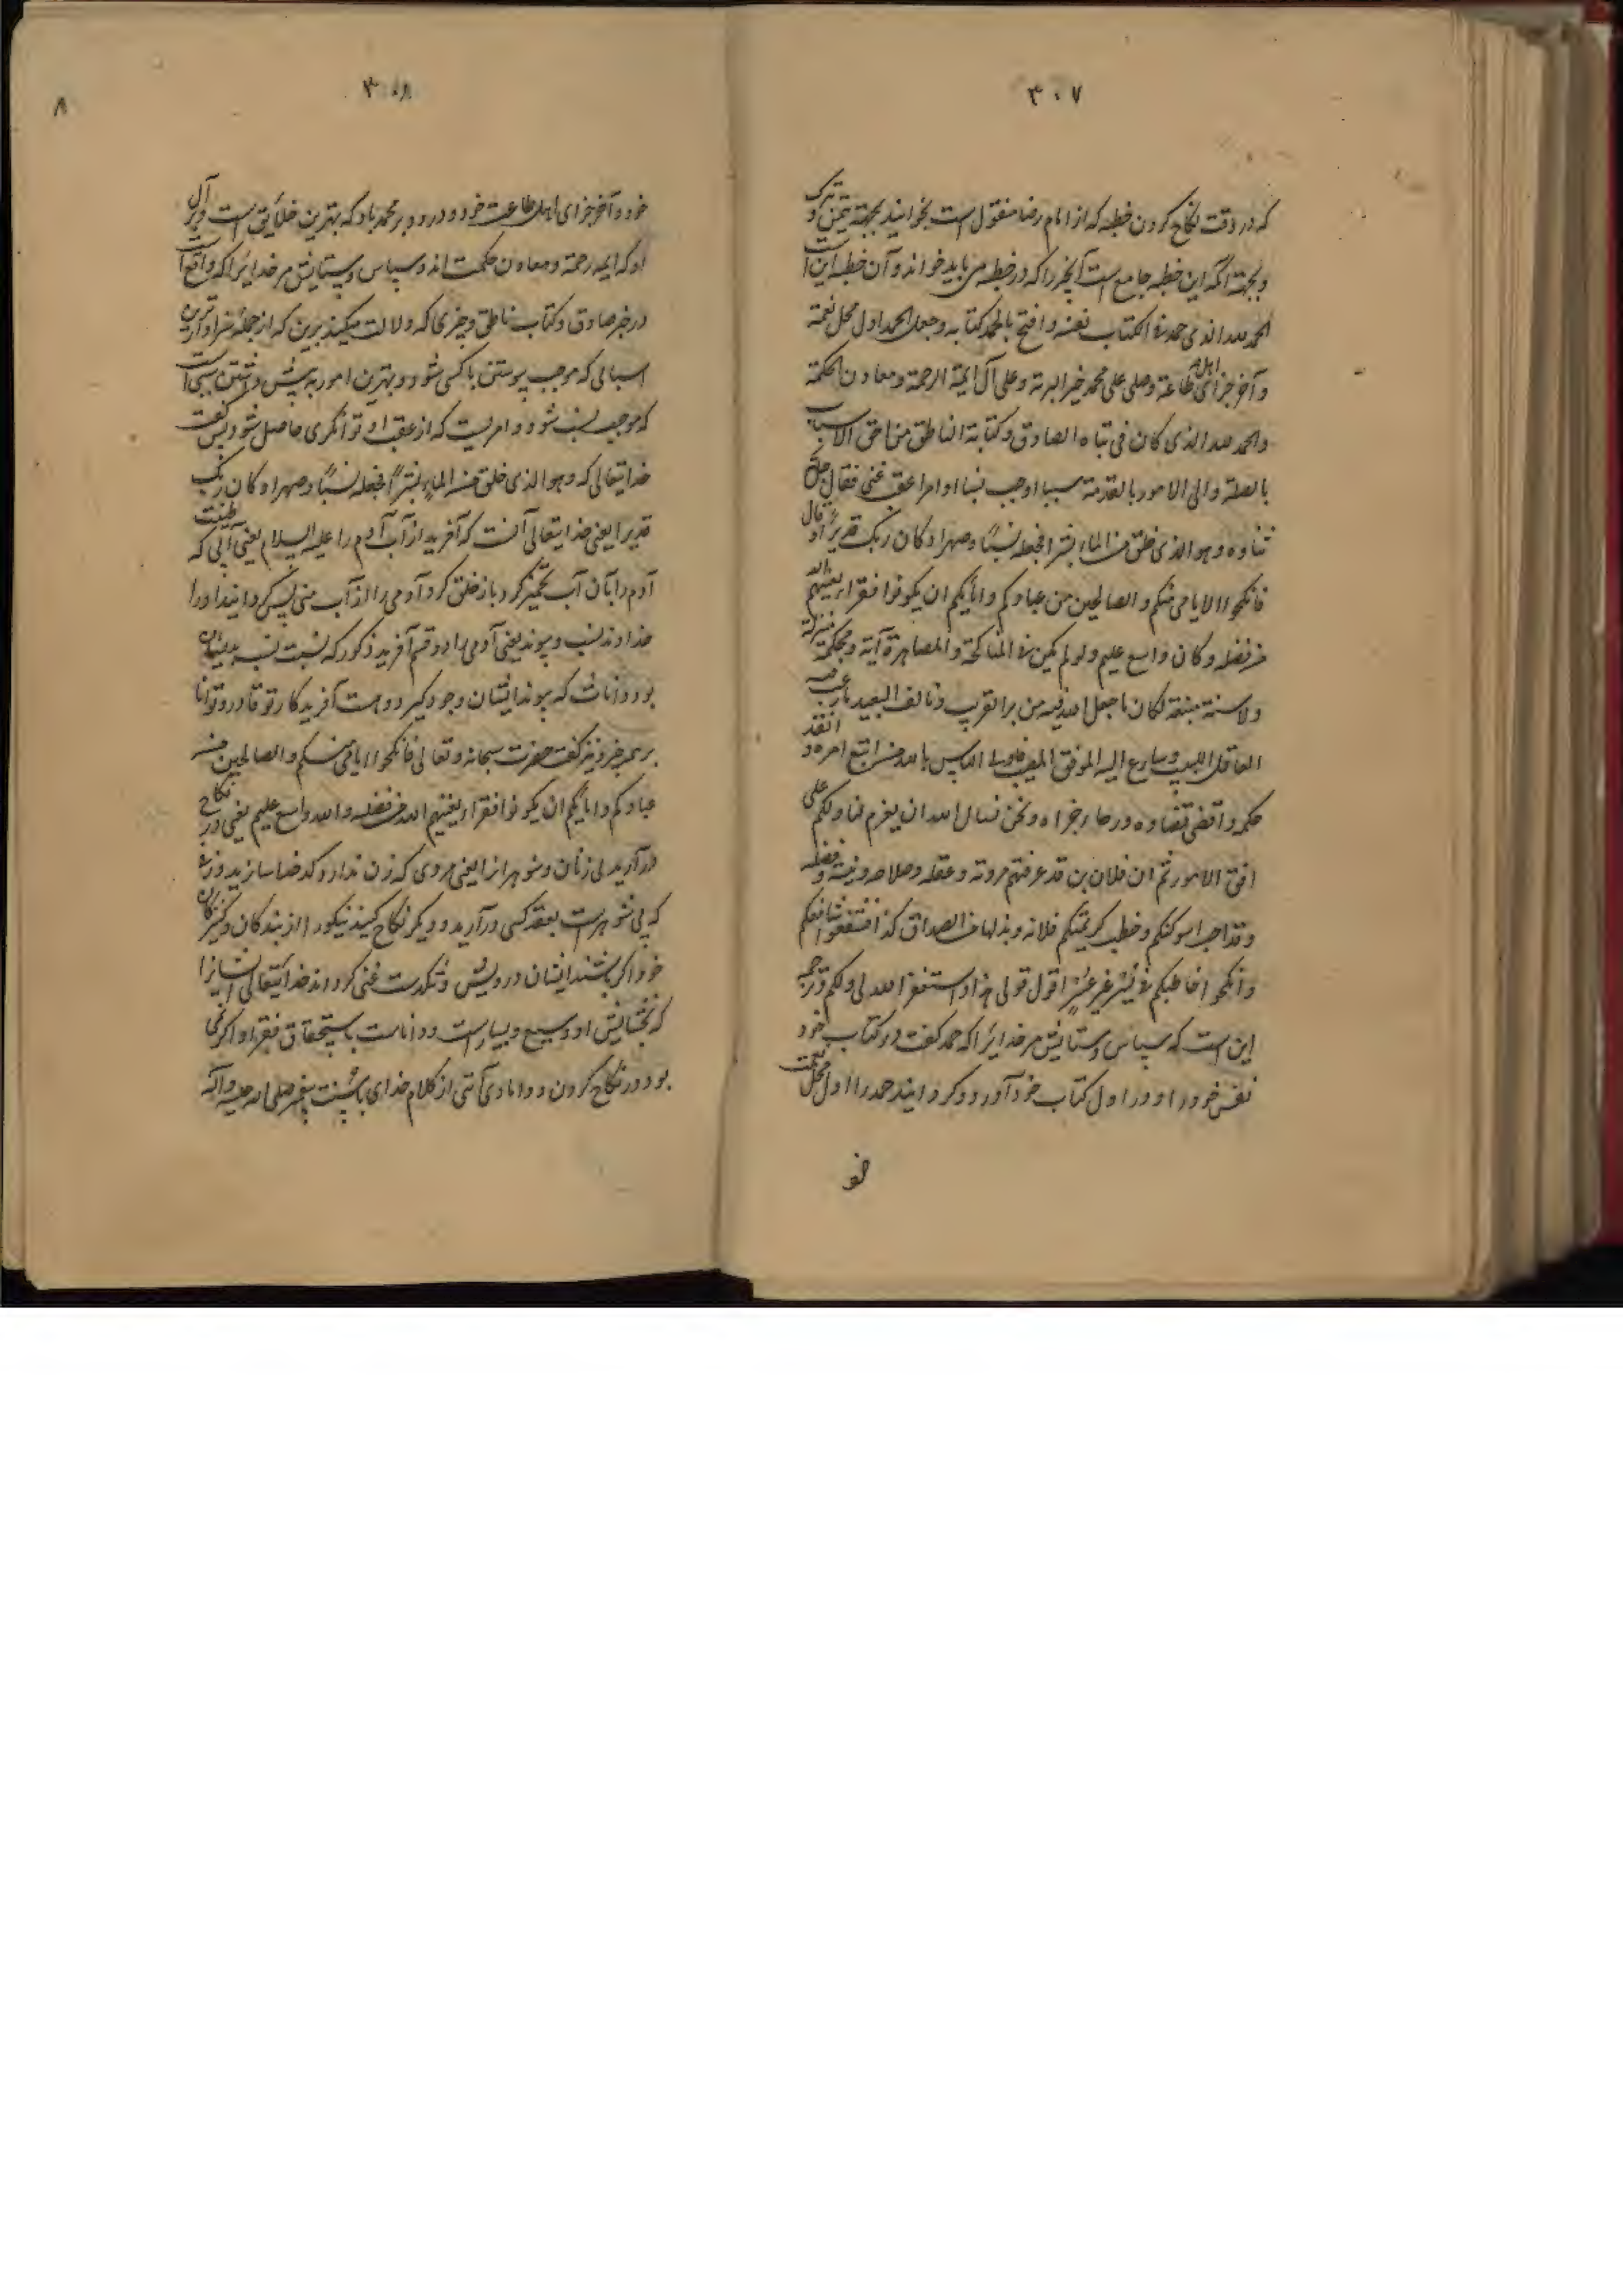 ۳۰۷
که در وقت نکاح کردن خطبه که از امام رضا منقول است بخوانند بجهته تیمن و تبرک
و بجهته آنکه این خطبه جامع است آنچه را که در خطبه می باید خواند و آن خطبه این است
الحمد لله الذی حمد فی الکتاب نفسه و افتتح بالحمد کتابه و جعل الحمد اول محل نعمته
و آخر جزای اهل طاعته و صلی علی محمد خیر البریه و علی آله ائمة الرحمة و معادن الحکمة
والحمد لله الذی کان فی نباه الصادق و کتابه الناطق من احق الاسباب
بالصلة و الی الامور بالتقدمة سببا اوجب نسبا او امرا عقب غنی فقال جل
ثناوه و هو الذی خلق من الماء بشرا فجعله نسبًا و صهرا و کان ربک قدیرًا و قال
فانکحوا الایامی منکم و الصالحین من عبادکم و امائکم ان یکونوا فقرا یغنیهم الله
من فضله و کان واسع علیم و لو لم یکن فی المناکحة و المصاهرة آیة محکمة منزلة
ولا سنة متبعة لکان ما جعل الله فیه من بر القریب و تالف البعید ما رغب فیه
العاقل اللبیب و سارع الیه الموفق المصیب فاولی الناس بالله من اتبع امره و انفذ
حکمه و اقضی قضاوه و رجا جزاه و نحن نسال الله ان یعزم لنا و لکم علی
اوفق الامور ثم ان فلان بن قد عرفتم مروته و عقله و صلاحه و نیته و فضله
و قد احب شرکتکم و خطب کریمتکم فلانه و بذل لها من الصداق کذا فشفعوا شافعکم
و انکحوا خاطبکم فی یسر غیر عسر اقول قولی هذا و استغفر الله لی و لکم و ترجمه
این است که سپاس و ستایش مر خدایرا که حمد گفت در کتاب خود
نفس خود را و در اول کتاب خود آورد و گردانید حمد را اول محل نعمت
خو
۳۰۸
۸
خود و آخر جزای اهل طاعت خود و درود بر محمد باد که بهترین خلایق است و بر آل
او که ایمه رحمة و معادن حکمت اند و سپاس و ستایش مر خدایرا که واقع است
در خبر صادق و کتاب ناطق و چیزی که دلالت میکند برین که از جمله سزاوارترین
اسبابی که موجب پیوستن با کسی شود و بهترین امور به پیش داشتن سببی است
که موجب نسب شود و امریست که از عقب او توانگری حاصل شود پس گفت
خدایتعالی که و هو الذی خلق من الماء بشرًا فجعله نسبًا و صهرا و کان ربک
قدیرا یعنی خدایتعالی آنست که آفرید از آب آدم را علیه السلام یعنی آبی که طینت
آدم را بآن آب تخمیر کرد باز خلق کرد آدمی را از آب منی پس گردانید او را
خداوند نسب و پیوند یعنی آدمی را دو قسم آفرید ذکور که نسبت نسب بدیشان
بود و اناث که پیوند ایشان وجود گیرد و هست آفریدکار تو قادر و توانا
بر همه چیز و نیز گفت حضرت سبحانه و تعالی فانکحوا الایامی منکم و الصالحین من
عبادکم و امائکم ان یکونوا فقرا یغنیهم الله من فضله و الله واسع علیم یعنی در نکاح
در آرید بی زنان و شوهرانرا یعنی مردی که زن ندارد کدخدا سازید و زنی
که بی شوهر است بعقد کسی در آرید و دیگر نکاح کنید نیکو را از بندگان و کنیزکان
خود اگر باشند ایشان درویش و تنگدست غنی گرداند خدایتعالی ایشانرا
که بخشایش او وسیع و بسیار است و داناست باستحقاق فقرا و اگر نمی
بود در نکاح کردن و دامادی آیتی از کلام خدای یا سنت پیغمبر صلی الله علیه و آله